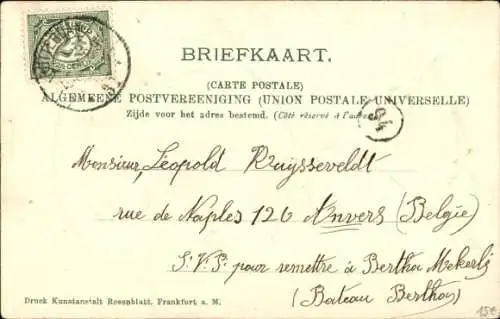 2½
BRIEFKAART.
(CARTE POSTALE)
ALGEMEENE POSTVEREENIGING (UNION POSTALE UNIVERSELLE)
Zijde voor het adres bestemd. (Côté réservé à l'adresse
94
Monsieur Léopold Kruysseveldt
rue de Naples 126 Anvers (Belgie)
S.V.P. pour remettre à Bertha Mekerli
(Bateau Bertha)
Druck Kunstanstalt Rosenblatt, Frankfort a. M.